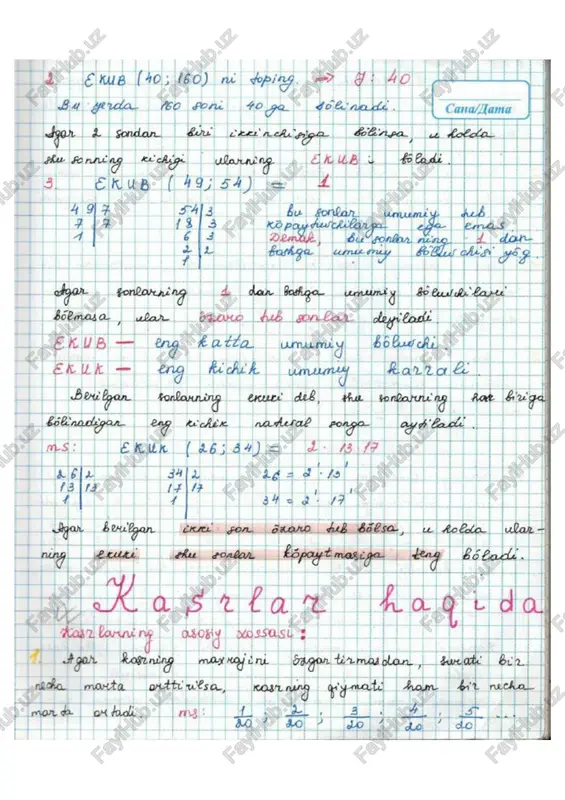 2. EKUB (40; 160) ni toping. ⇒ J: 40
Сана/Дата
Bu yerda 160 soni 40 ga bölinadi.
Agar 2 sondan biri ikkinchisiga bölinsa, u holda
shu sonning kichigi ularning EKUB i böladi.
3. EKUB (49; 54) = 1
49 | 7 54 | 3 bu sonlar umumiy tub
7 | 7 18 | 3 köpaytuvchilarga ega emas
1 6 | 3 Demak, bu sonlarning 1 dan
2 | 2 bashqa umumiy böluvchisi yöq.
1
Agar sonlarning 1 dan bashqa umumiy böluvchilari
bölmasa, ular özaro tub sonlar deyiladi
EKUB — eng katta umumiy böluvchi.
EKUK — eng kichik umumiy karrali.
Berilgan sonlarning ekuki deb, shu sonlarning har biriga
bölinadigan eng kichik natural songa aytiladi.
ms: EKUK (26; 34) = 2 · 13 · 17
26 | 2 34 | 2 26 = 2¹ · 13¹
13 | 13 17 | 17
1 1 34 = 2¹ · 17¹
Agar berilgan ikki son özaro tub bölsa, u holda ular-
ning ekuki shu sonlar köpaytmasiga teng böladi.
Kasrlar haqida
Kasrlarning asosiy xossasi:
1. Agar kasrning maxrajini özgartirmasdan, surati bir
necha marta orttirilsa, kasrning qiymati ham bir necha
marta ortadi. ms: 1/20 ; 2/20 ; 3/20 ; 4/20 ; 5/20 ...
FaylHub.uz